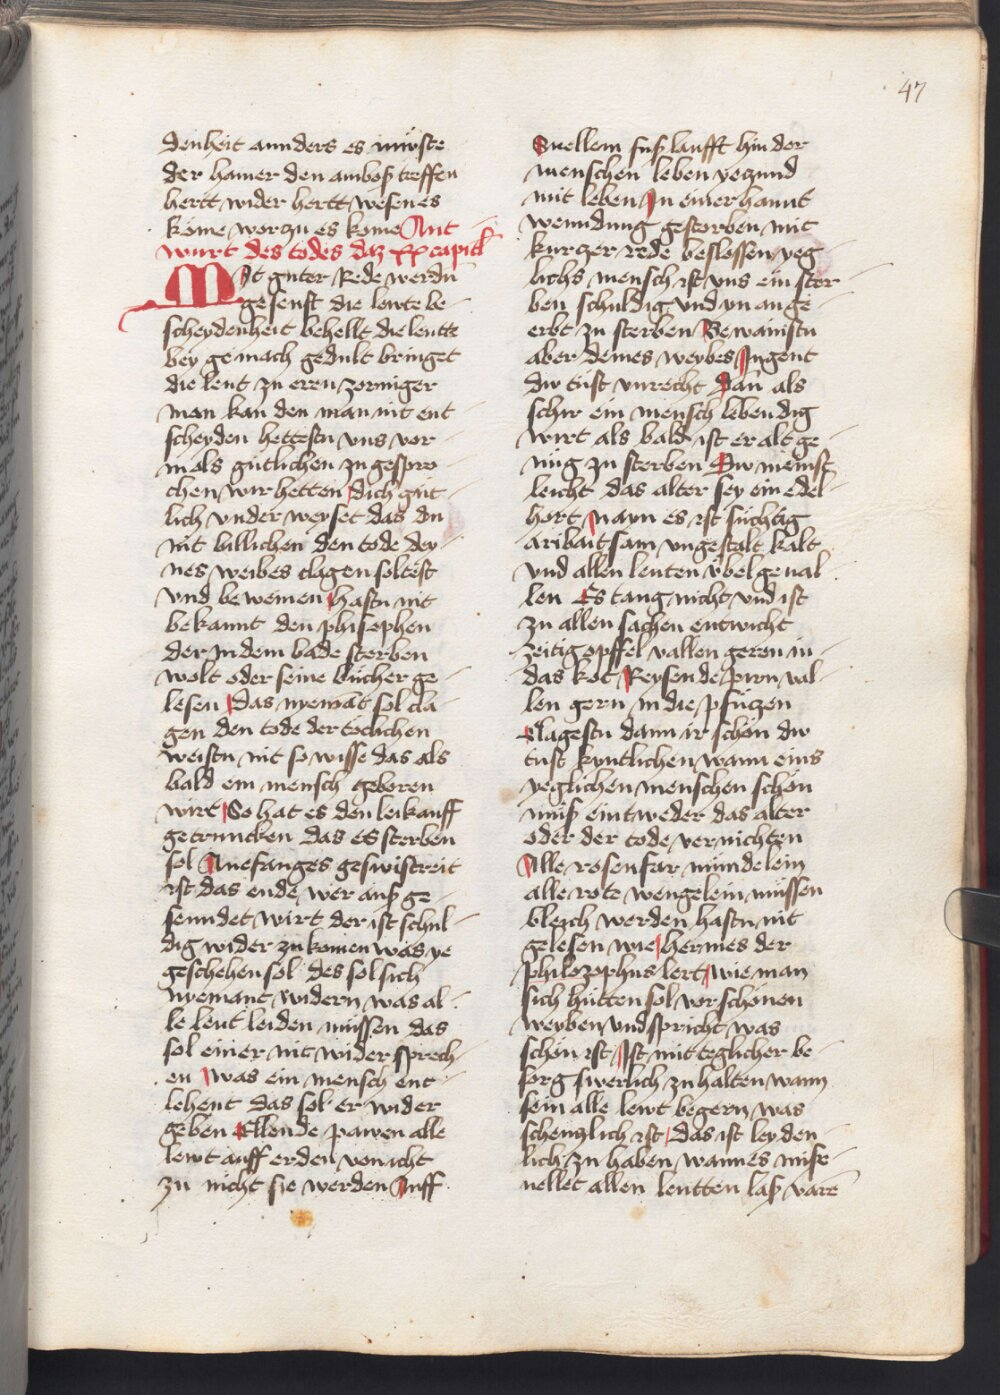 47
denheit annders es müste
der hamer den anboß treffen
hertt wider hertt wesen es
kome worzu es kome Ant
wurt des todes daz xx capitl
Mit guter Rede werdn
gesenft die lewte be
scheydenheit behellt die leutte
bey gemach gedult bringet
die leut zu eren zorniger
man kan den man nit ent
scheyden hettestu vns vor
mals gütlichen zu gespro
chen wir hetten dich güt
lich vnder weyset das du
nit billichen den tode dey
nes weibes clagen soltest
vnd beweinen hastu nit
bekannt den phisophen
der in dem bade sterben
wolt oder seine bücher ge
lesen das nyemāt sol cla
gen den tode der totlichen
weistu nit so wisse das als
bald ein mensch geboren
wirt So hat es den leikauff
getruncken das es sterben
sol Anefanges geswistreit
ist das ende wer auß ge
senndet wirt der ist schul
dig wider zu komen was ye
geschehen sol des sol sich
nyemant widern was al
le leut leiden müssen das
sol einer nit wider sprech
en was ein mensch ent
lehent das sol er wider
geben Ellende pawen alle
lewt auff erden von icht
zu nicht sie werden Auff
Snellem fuß laufft hin der
menschen leben yeczund
mit leben In einer hannt
wenndung gestorben mit
kurczer rede beslossen yeg
lichs mensch ist vns ein ster
ben schuldig vnd yn an ge
erbt zu sterben Bewainstu
aber deines weybes Jugent
du tüst vnrecht Dan als
schir ein mensch lebendig
wirt als bald ist er alt ge
nug zu sterben Du meinst
leicht das alter sey ein edel
hort nayn es ist süchtig
aribaitsam vngestalt kalt
vnd allen leuten vbel geual
len Es taug nicht vnd ist
zu allen sachen entwicht
zeitig opffel vallen geren in
das kot Reysende pirn val
len gern in die pfüczen
Clagestu dann ir schön du
tust kyntlichen wann eins
yeglichen menschen schön
muß eintweder das alter
oder der tode vernichten
Alle rosenfar mündelein
alle rote wengelein müssen
bleich werden hastu nit
gelesen wie hermes der
philozophus lert wie man
sich hütten sol vor schönen
weyben vnd spricht was
schön ist Ist mit teglicher be
sorg swerlich zu halten wann
sein alle lewt begern was
scheuczlich ist das ist leyden
lich zu haben wann es miß
uellet allen leutten laß varē